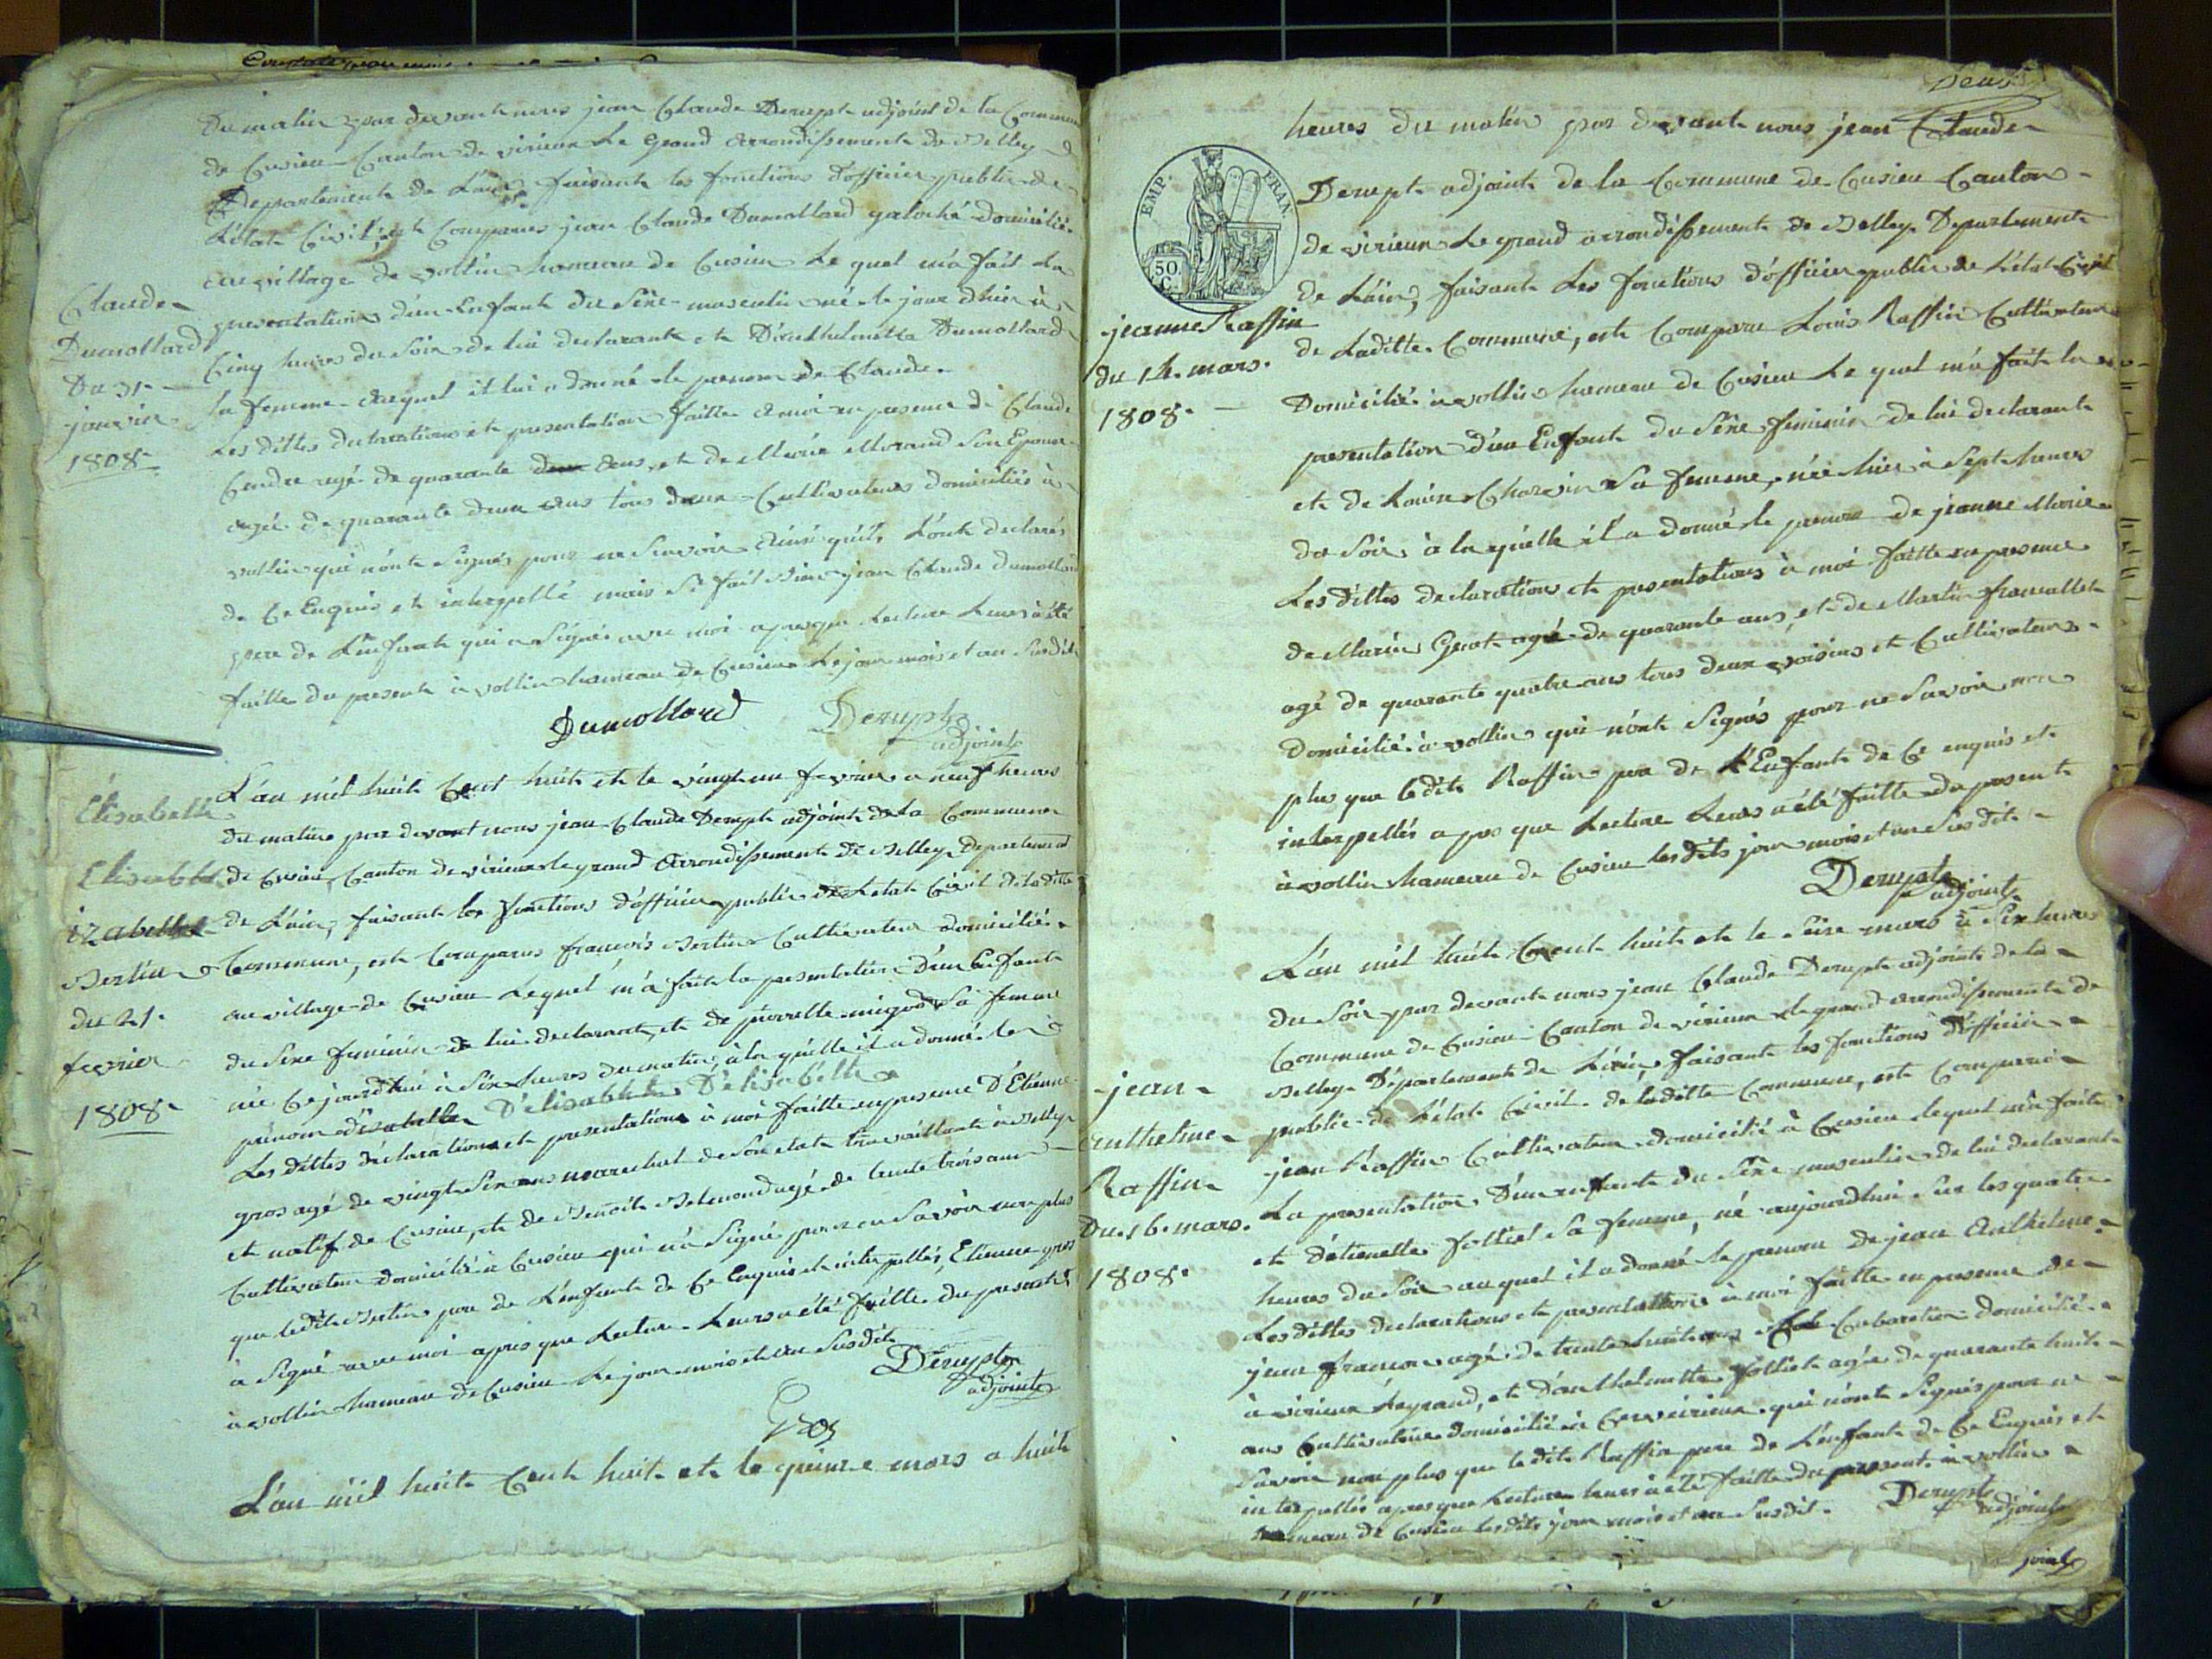 du matin par devant nous jean Claude Derupt adjoint de la Commune
de Cusieu Canton de virieu Le Grand arrondissement de Belley
Departement de L'ain, faisant les fonctions d'officier public de
L'état Civil, est Comparus jean Claude Dumollard galoché domicilié
au village de vollin hameau de Cusieu Le quel m'a fait La
presentation d'un Enfant du Séxe masculin né le jour d'hier à
Cinq heures du Soir de lui declarant et D'anthelmette Dumollard
Sa femme auquel il lui a donné le prenom de Claude.
Les dittes declarations et presentation faitte à moi en presence de Claude
agé de quarante ans, et de Marie Morand Son Epouse
agée de quarante deux ans tous deux Cultivateurs domiciliés à
vollin qui n'ont Signés pour ne Savoir ainsi qu'ils L'ont declarés
de Ce Enquis et interpellé mais Si fait bien jean Claude dumollard
pere de L'enfant qui a Signé avec moi apres que Lecture Leurs a été
faitte du present à vollin hameau de Cusieu Le jour mois et an Susdit
Dumollard Derupt
adjoint
Claude
Dumollard
Du 31
janvier
1808
L'an mil huit Cent huit et le vingt un fevrier a neuf heures
du matin par devant nous jean Claude Derupt adjoint de La Commune
de Cusieu, Canton de virieu le grand arrondissement de Belley departement
de L'ain, faisant les fonctions d'officier public de L'etat Civil de laditte
Commune, est Comparus françois Bertin Cultivateur domicilié
au village de Cusieu Lequel m'a fait la presentation d'un Enfant
du Séxe feminin de lui declarant, et de pierrette migod Sa femme
née Ce jourd'hui à Six heures du matin, à la quélle il a donné le
prénom d'isabelle D'élisabhet D'élisabéth
Les dittes déclarations et presentations à moi faitte en presence D'Etienne
gros agé de vingt Six ans marechal de Son etat travaillant à Belley
et natif de Cusieu, et de Benoit Belmond agé de trente trois ans
Cultivateur domicilié à Cusieu qui n'a Signé pour ne Savoir non plus
que ledit Bertin pere de L'enfant de Ce Enquis et interpellés, Etienne gros
à Signé avec moi apres que Lecture Leurs a été faitte du present
à vollin hameau de Cusieu Le jour mois et an Susdit
Derupt
adjoint
Gros
Élisabeth
Elisabhet
izabelle
Bertin
du 21
fevrier
1808
L'an mil huit Cent huit et le quinze mars a huit
Deux
heures du matin par devant nous jean Claude
Derupt adjoint de la Commune de Cusieu Canton
de virieu Le grand arrondissement de Belley Departement
de L'ain, faisant Les fonctions d'officier public de L'état Civil
de Laditte Commune, est Comparu Louis Raffin Cultivateur
Domicilié à vollin hameau de Cusieu Le quel m'a fait la
presentation d'un Enfant du Séxe feminin de lui declarant
et de Louise Charvin Sa femme, née hier à Sept heures
du Soir à la quélle il a donné le prenom de jeanne Marie
Les dittes declarations et presentations à moi faitte en presence
de Marin Genot agé de quarante ans, et de Martin
agé de quarante quatre ans tous deux voisins et Cultivateurs
Domicilié à vollin qui n'ont Signés pour ne Savoir non
plus que ledit Raffin pere de L'Enfant de Ce enquis et
interpellés apres que Lecture Leurs a été faitte du present
à vollin hameau de Cusieu les dits jour mois et an Susdit
Derupt
adjoint
EMP. FRAN.
50. C.
jeanne Raffin
du 14. mars.
1808.
L'an mil huit Cent huit et le Seize mars à Six heures
du Soir par devant nous jean Claude Derupt adjoint de la
Commune de Cusieu Canton de virieu le grand arrondissement de
Belley Département de L'ain, faisant les fonctions d'officier
public de L'état Civil de laditte Commune, est Comparu
jean Raffin Cultivateur domicilié à Cusieu lequel m'a fait
La presentation d'un enfant du Séxe masculin de lui declarant
et d'étiennette folliet Sa femme, né aujourd'hui Sur les quatre
heures du Soir auquel il a donné le prenom de jean Anthelme
Les dittes declarations et presentations à moi faitte en presence de
jean agé de trente huit ans Cabaretier domicilié
à virieu Legrand, et d'anthelmette folliet agée de quarante huit
ans Cultivatrice domiciliée à Cerveirieu qui n'ont Signés pour ne
Savoir non plus que ledit Raffin pere de L'enfant de Ce Enquis et
interpellés apres que Lecture leurs a été faitte du present à vollin
hameau de Cusieu les dits jour mois et an Susdit.
Derupt
adjoint
jean
anthelme
Raffin
Du 16. mars.
1808.